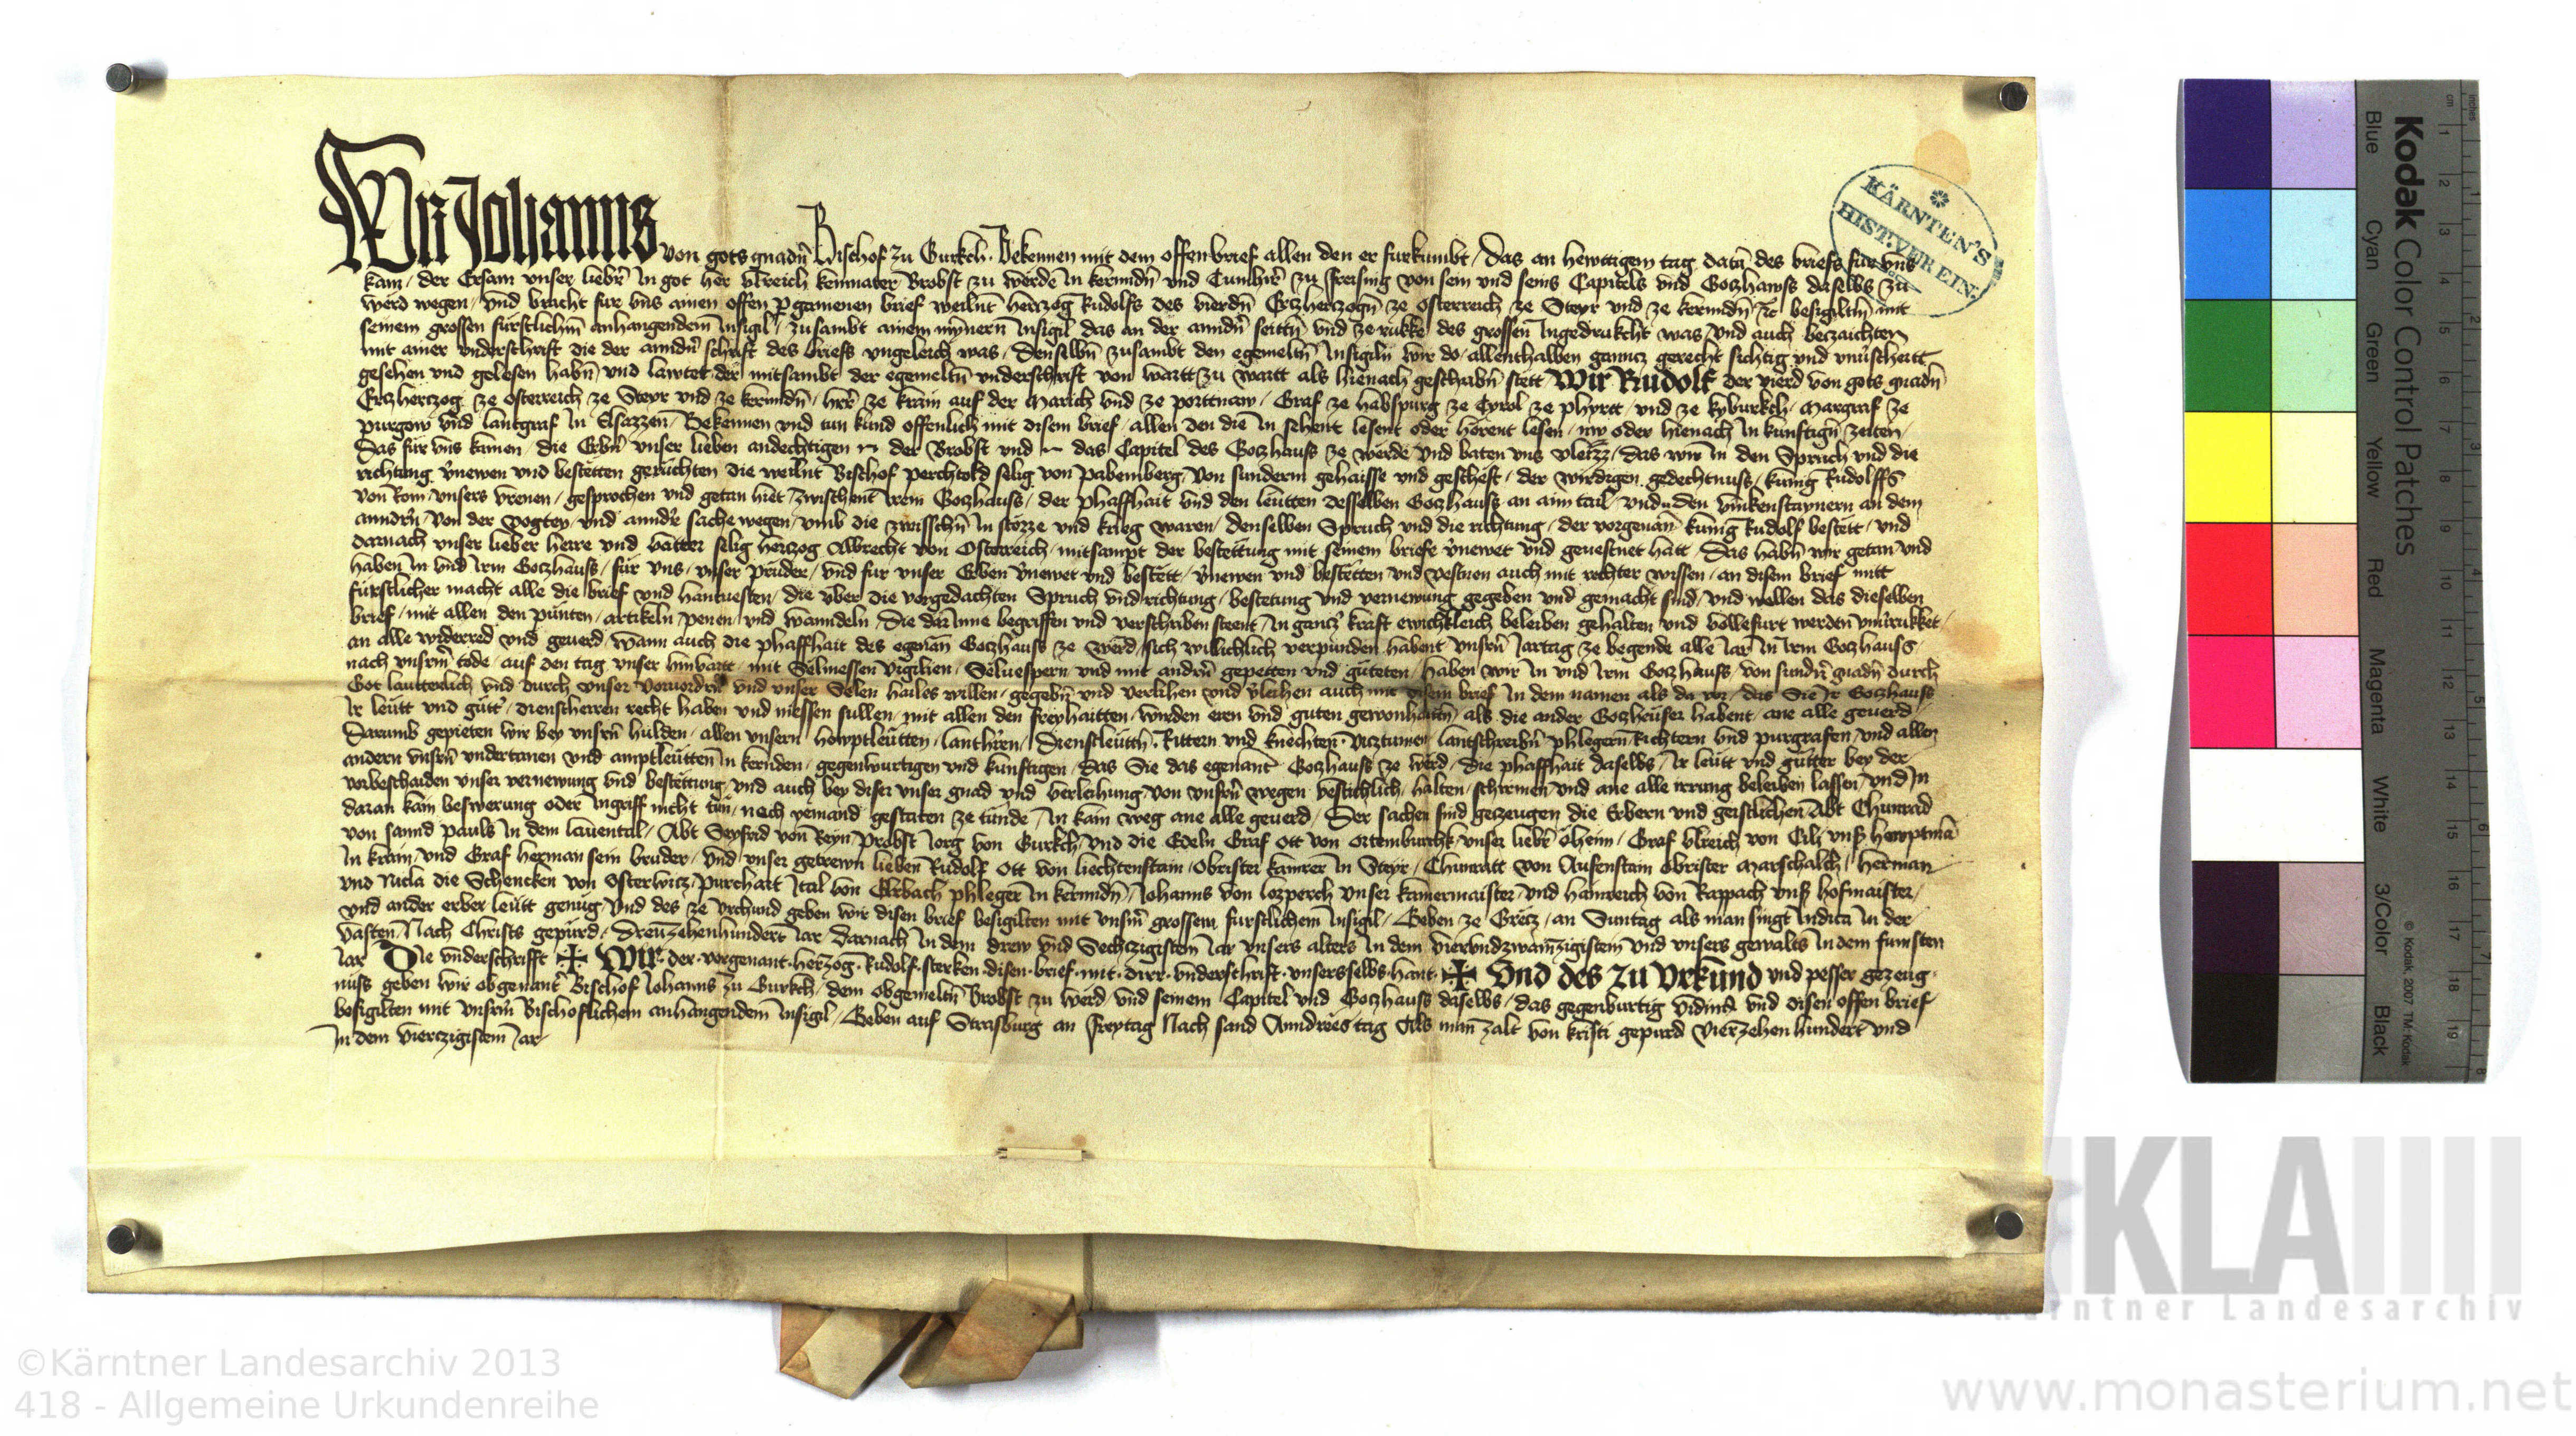 Wir Johanns von gots gnadn̄ Bischof zu Gurkch. Bekennen mit dem offenbrief allen den er furkumbt / das an hewttigem tag data des briefs fur vns
kam / der Ersam vnser liebr̄ In got her Vlreich kemnater Brobst zu Werde In kernndn̄ vnd Tumhr̄r̄ zu Freising von sein vnd seins Capitels vnd Gotzhawss daselbs zu
Werd wegen / vnd bracht fur vns ainen offen pgamenen brief weilnt hertzog Rudolfs des vierdn̄ Ertzhertzogn̄ ze Osterreich ze Steyr vnd ze kernndn̄ ꝛc besigiltn̄ mit
seinem grossen furstlichm̄ anhangendem Insigil / zusambt ainem mynnern Insigil das an der anndn̄ seittn̄ vnd ze rukke des grossen Ingedrukcht was / vnd auch betzaichten
mit ainer vnderschrift die der anndn̄ schrift des briefs vngeleich was / denselbn̄ zusambt den egemeltn̄ Insigiln wir do allenthalben ganntz gerecht sichtig vnd vnuschertt
gesehen vnd gelesen habn̄ / vnd lawtet der mitsambt der egemeltn̄ vnderschrift von wartt zu wartt als hienach geschribn̄ stett Wir Rudolf der vierd von gots gnadn̄
Ertzhertzog ze Osterreich ze Steyr vnd ze kernndn̄ / herr ze krain auf der Marich vnd ze porttnaw / Graf ze habspurg ze Tyrol ze phyrtt / vnd ze kyburkch / Margraf ze
purgow vnd lantgraf In Elsazzen / Bekennen vnd tun kund offenlich mit disem brief / allen den die In sehent lesent oder horent lesen / nw oder hienach In kunftign̄ zeiten /
Das fur vns kamen die Erbn̄ vnser lieben andechtigen N der Brobst vnd N das Capitel des Gotzhauss ze werde vnd baten vns vleizz / das wir In den Spruch vnd die
richtung v̄newen vnd bestetten geruchten die weilnt Bischof perchtold selig von pabemberg / von sunderm gehaisse vnd gescheft / der wirdigen gedechtnuss / kunig Rudolffs
von Rom / vnsers Vrenen / gesprochen vnd getan hiet / zwischent Irem Gotzhauss / der phaffhait vnd den leutten desselben Gotzhauss an aim tail / vnd den vinkenstaynern an dem
anndrn̄ / von der vogtey / vnd anndr̄ sache wegen / vmb die zwisschn̄ In stözze vnd krieg waren / denselben Spruch vnd die richtung / der vorgenan̄ kunig Rudolf bestett / vnd
darnach vnser lieber herre vnd vatter selig hertzog Albrecht von Osterreich / mitsampt der bestettung mit seinem briefe v̄newet vnd geuestnet hatt / Das habn̄ wir getan vnd
haben In vnd Irm Gotzhauss / für vns / vnser prüder / vnd fur vnser Erben v̄newet vnd bestett / v̄newen vnd bestetten vnd vestnen auch mit rechter wissen / an disem brief mitt
fürstlicher macht alle die brief vnd hantuesten / die vber die vorgedachten Spruch vnd richtung / bestetung vnd vernewung gegeben vnd gemacht sind / vnd wellen das dieselben
brief / mit allen den punten / artikeln / penen / vnd wanndeln / die dar Inne begriffen vnd verschriben steent / In gantzer kraft ewichkleich beleiben gehalten vnd vollefurt werden vnu̇rukket /
an alle widerred vnd geuerd / Wann auch die phaffhait des egenan̄ Gotzhauss ze werd / sich willichlich verpunden habent vnsrn̄ Jartag ze begende alle Jar In Irm Gotzhauss /
nach vnsrm̄ tode / auf den tag vnser hinuartt / mit Selmessen Vigilien / Seluespern vnd mit andrn̄ gepetten vnd gutteten / haben wir In vnd Irm Gotzhauss / von sundr̄n̄ gnadn̄ durch
Got lautterlich vnd durch vnser voruordrn̄ vnd vnser Selen hailes willen / gegebn̄ vnd verlihen vnd v̄leihen auch mit disem brief In dem namen als da vor / das Sie Ir Gotzhauss
Ir leutt vnd gutt / dienstherren recht haben vnd niessen sullen / mit allen den freyhaitten / wirden eren vnd guten gewonhaitn̄ / als die ander Gotzheuser habent / ane alle geuerd /
Darumb gepieten wir bey vnsrn̄ hulden / allen vnsern howptleutten / lanthr̄ren / Dienstleuttn̄ Rittern vnd knechten vitztumen lantschreibn̄ phlegern Richtern vnd purgrafen / vnd allen
andern vnsrn̄ vndertanen vnd amptleutten In kernden / gegenburtigen vnd kunftigen / das Sie das egenant Gotzhauss ze werd / die phaffhait daselbs / Ir leutt vnd gutter bey der
vorbeschaiden vnser vernewung vnd bestettung / vnd auch bey diser vnser gnad vnd verleihung von vnsrn̄ wegen vestichlich / halten / schirmen vnd ane alle irrung beleiben lassen / vnd In
daran kain beswerung oder Ingriff nicht tün / noch yemand gestaten ze tunde / In kain weg ane alle geuerd / Der sachen sind getzeugen die Erbern vnd geistlichen Abt Chunrad
von sannd Pauls In dem lauental / Abt Seyfrid von Reyn / Probst Jorg von Gurkch / vnd die Edeln Graf Ott von Ortemburchk vnser liebr̄ öheim / Graf Vlreich von Cili vnsr̄ howptma̅
In krain / vnd Graf herman sein bruder / vnd vnser getrewn lieben Rudolf Ott von liechtenstain / Obrister kamrer In Steyr / Chunratt von Aufenstain obrister Marschalch / herman
vnd Nicla die Schencken von Osterwitz / purchart Ital von Elrbach phleger In kernndn̄ / Johanns von lozperch vnser kamermaister / vnd hainreich von Rappach vnsr̄ hofmaister /
vnd ander erber leutt genüg / vnd des ze vrchund geben wir disen brief besigilten mit vnsrm̄ grossem furstlichem Insigil / Geben ze Gretz / an Suntag als man singt Iudica In der
vasten / Nach Christs gepurd / Dreutzehenhundert Jar / darnach In dem drew vnd Sechtzigistem Jar / vnsers alters In dem viervndzwaintzigistem vnd vnsers gewalts In dem funften
Jar Die vnderschrifft ✠ Wir der vorgenant hertzog Rudolf sterken disen brief mit dirr vnderschrift vnsers selbs hant ✠ Vnd des zu vrkund vnd pesser gezeug-
nuss geben wir obgenant̄ Bischof Johanns zu Gurkch / dem obgemeltn̄ Brobst zu Werd / vnd seinem Capitel vnd Gotzhauss daselbs / das gegenburtig vidimus vnd disen offen brief
besigilten mit vnsrm̄ Bischoflichem anhangendem Insigil / Geben auf Strasburg an Freytag Nach sand Anndres tag Als man zalt von kristi gepurd vierzehenhundert vnd
In dem viertzigistem Jar
KÄRNTEN'S
HIST. VEREIN.
Kodak Color Control Patches
Blue Cyan Green Yellow Red Magenta White 3/Color Black
© Kodak, 2007 TM: Kodak
cm 1 2 3 4 5 6 7 8 9 10 11 12 13 14 15 16 17 18 19
inches 1 2 3 4 5 6 7 8
KLA
Kärntner Landesarchiv
©Kärntner Landesarchiv 2013
418 - Allgemeine Urkundenreihe
www.monasterium.net